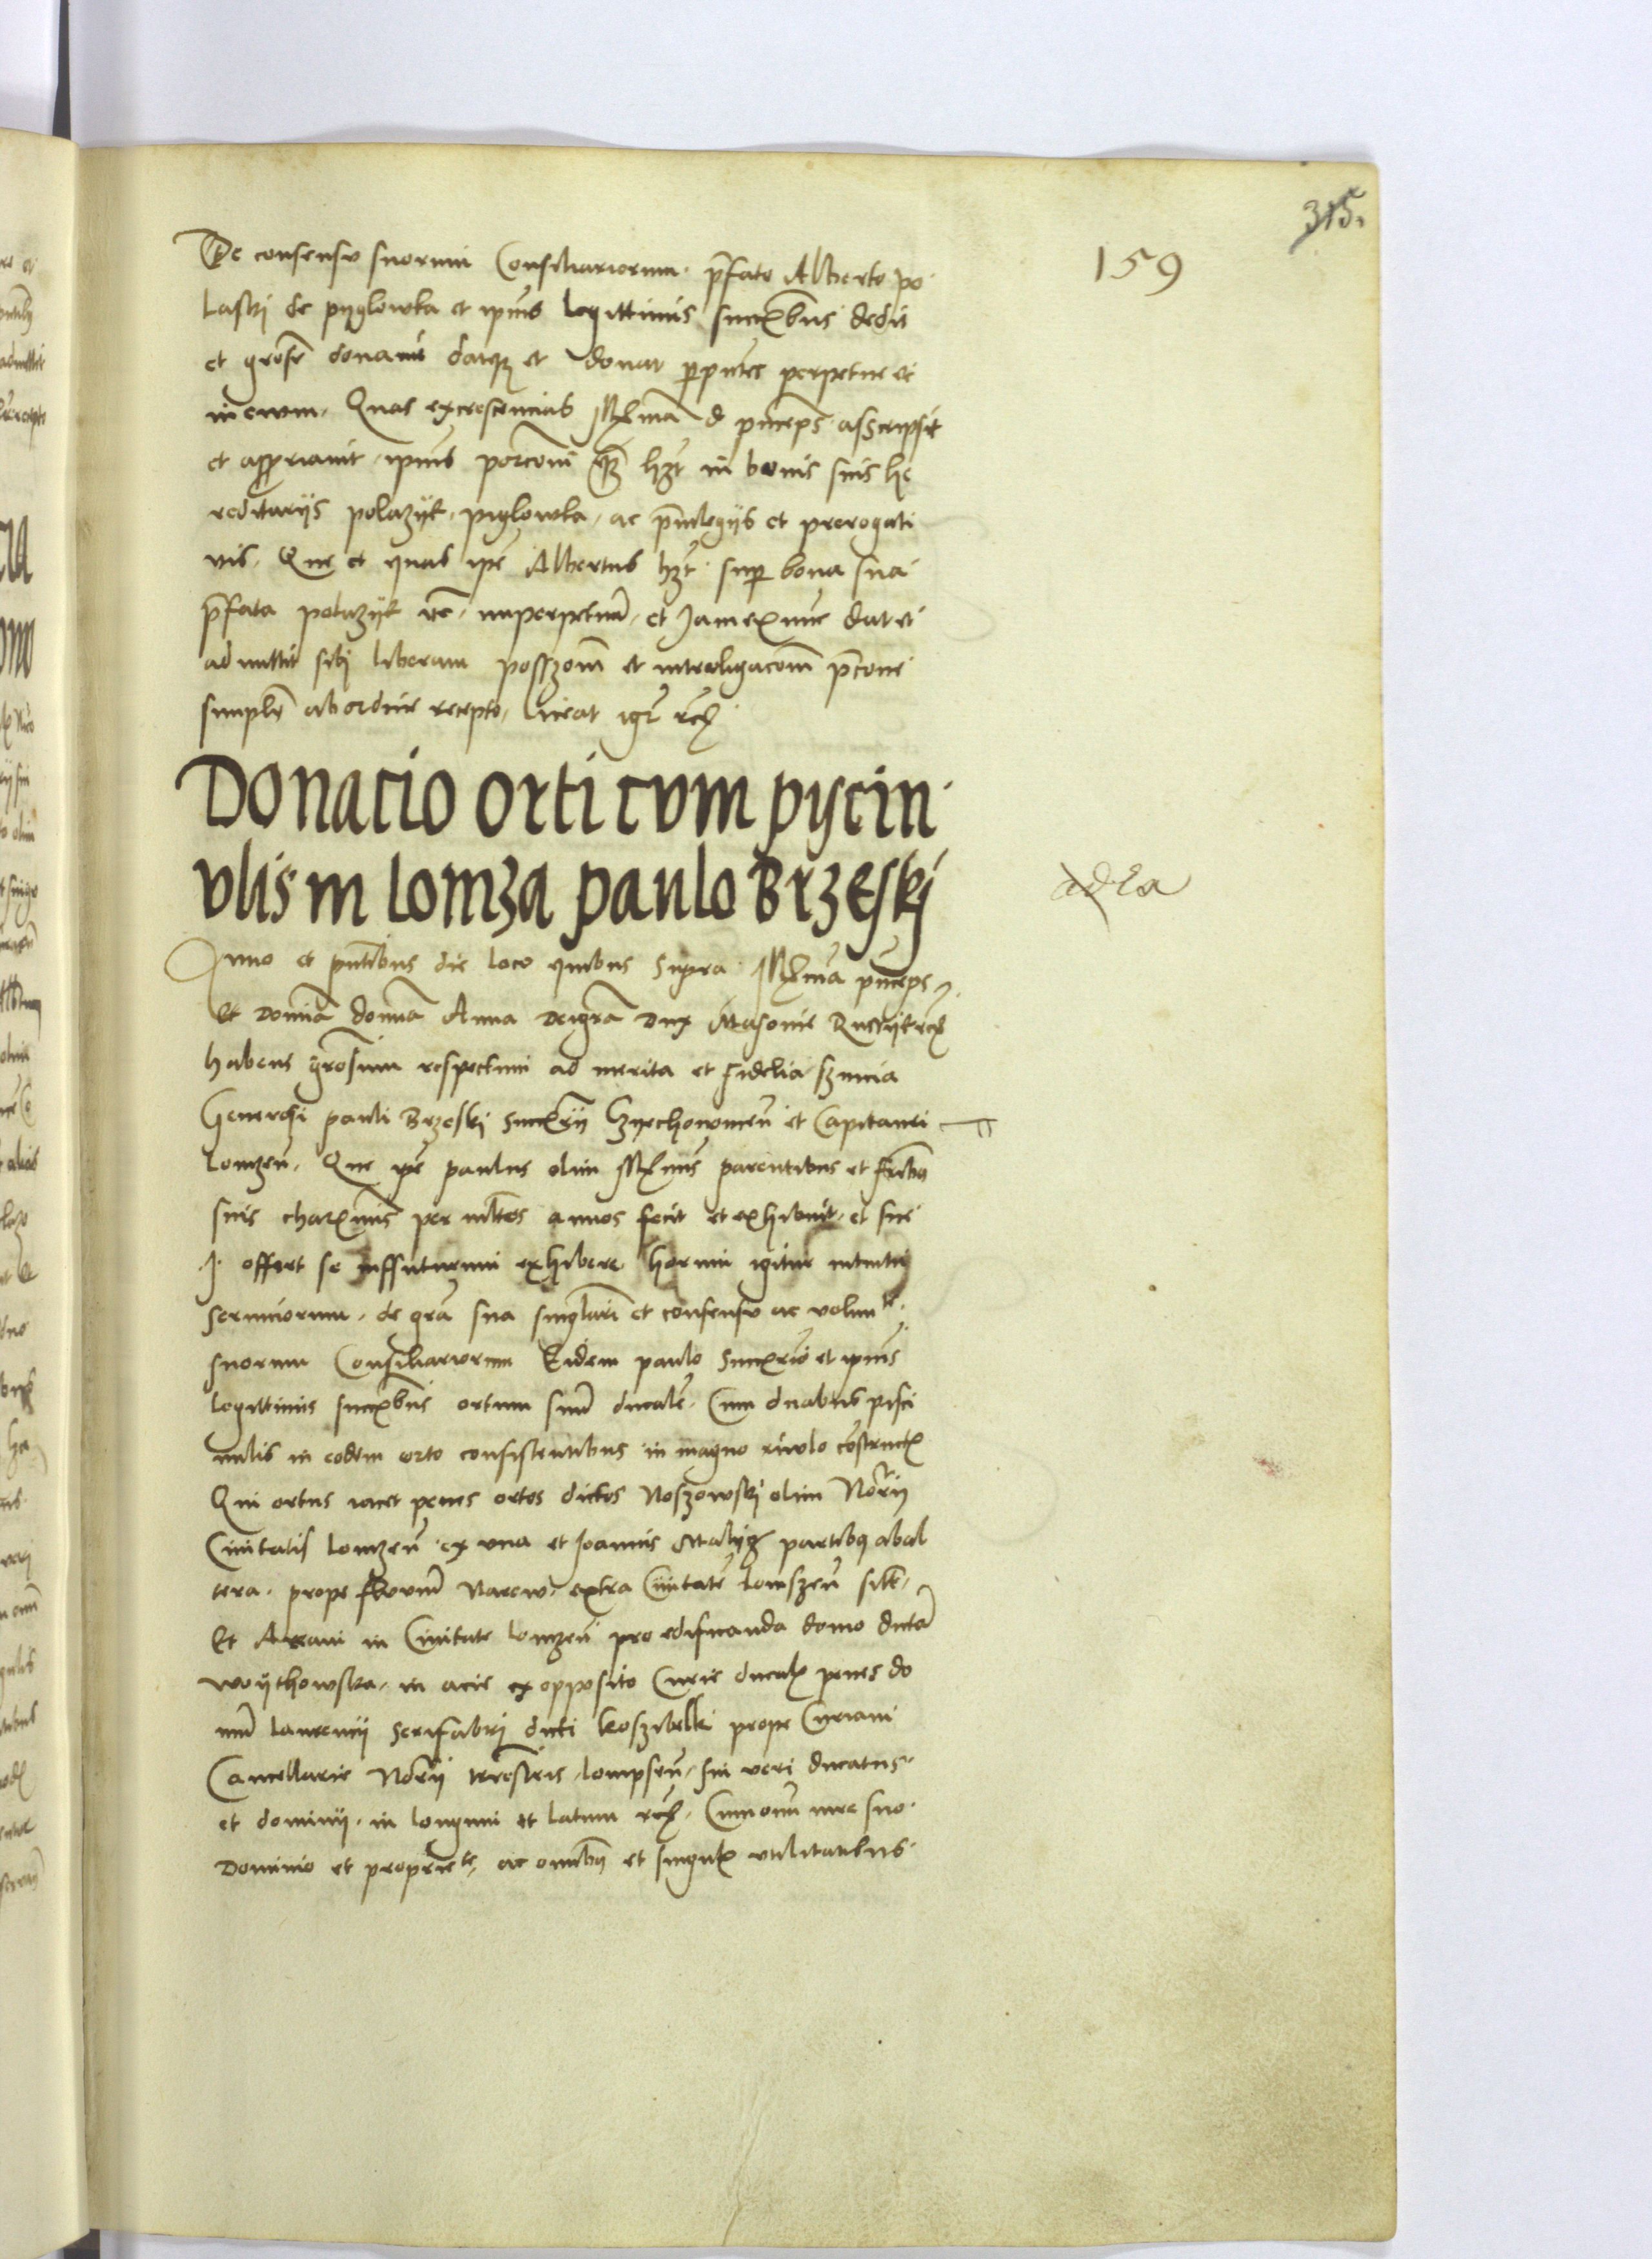 315.
159
De consensu suorum Consiliariorum. p̄fato Alberto po
laski de pyglowka et ipsius legittimis succ̄bus dedit
et grōse donavit datq3 et donat p̄pntes perpetue et
in ewm. Quas excrescencias Illma d princeps asscripsit
et appriavit ipius porcom̄ quā h3t in bonis suis he
reditarijs polazijk, piglowka, ac p̄vilegijs et prerogati
vis. Que et quas ip̄e Albertus h3t sup bona sua
p̄fata polazijk etc. inperpetuū et Jam ex nunc dat et
admittit sibj liberam possz̄om et intro ligacom̄ p̄cone
simpl̄r ab ordine recepto, liceat igr̄ etc̄
Donacio orti cvm pyscin
vlis in Lomza paulo Brzeskj
Anno et pn̄tibus die loco quibus supra Illma princeps
Et Domīa domīa Anna Dei grā Dux Masovie Russijeetc̄
habens grōsum respectum ad merita et fidelia servicia
Generosi pauli Brzeski succ̄rij Czyechonowen̄ et Capitanei
Lomzen̄. Que ip̄e paulus olim Illmis parentibus et frībus
suis charmis per multos annos fecit et exhibuit et sue
J. offert se inffuturum exhibere horum igitur intuitu
serviciorum. de grā sua singlari et consensu ac volunte.
suorum Consiliariorum Eidem paulo succ̄rio et ipius
legittimis succ̄bus ortum suū ducalē. Cum duabus pisci
nulis in eodem orto consistentibus in magno rivolo constructis
Qui ortus iacet penes ortos dictos Noszowskj olim Notrij
Civitatis Lomzen̄ ex una et Joannis Malijg partibus ab al
tera. prope fluviū Narew. extra Civitatē Lomszen̄ sitū.
Et Aream in Civitate Lomzen̄ pro edificanda domo dictā
woijthowska. in acie ex opposito Curie ducalis penes do
mū laurencij serifabrj dicti koszibelki prope Curiam
Cancellarie Notrij terrestris Lompsen̄. sui veri ducatus
et dominij. in longum et latum etc̄. Cum omī iure suo
Dominio et propriete, ac omibus et singulis utilitatibus